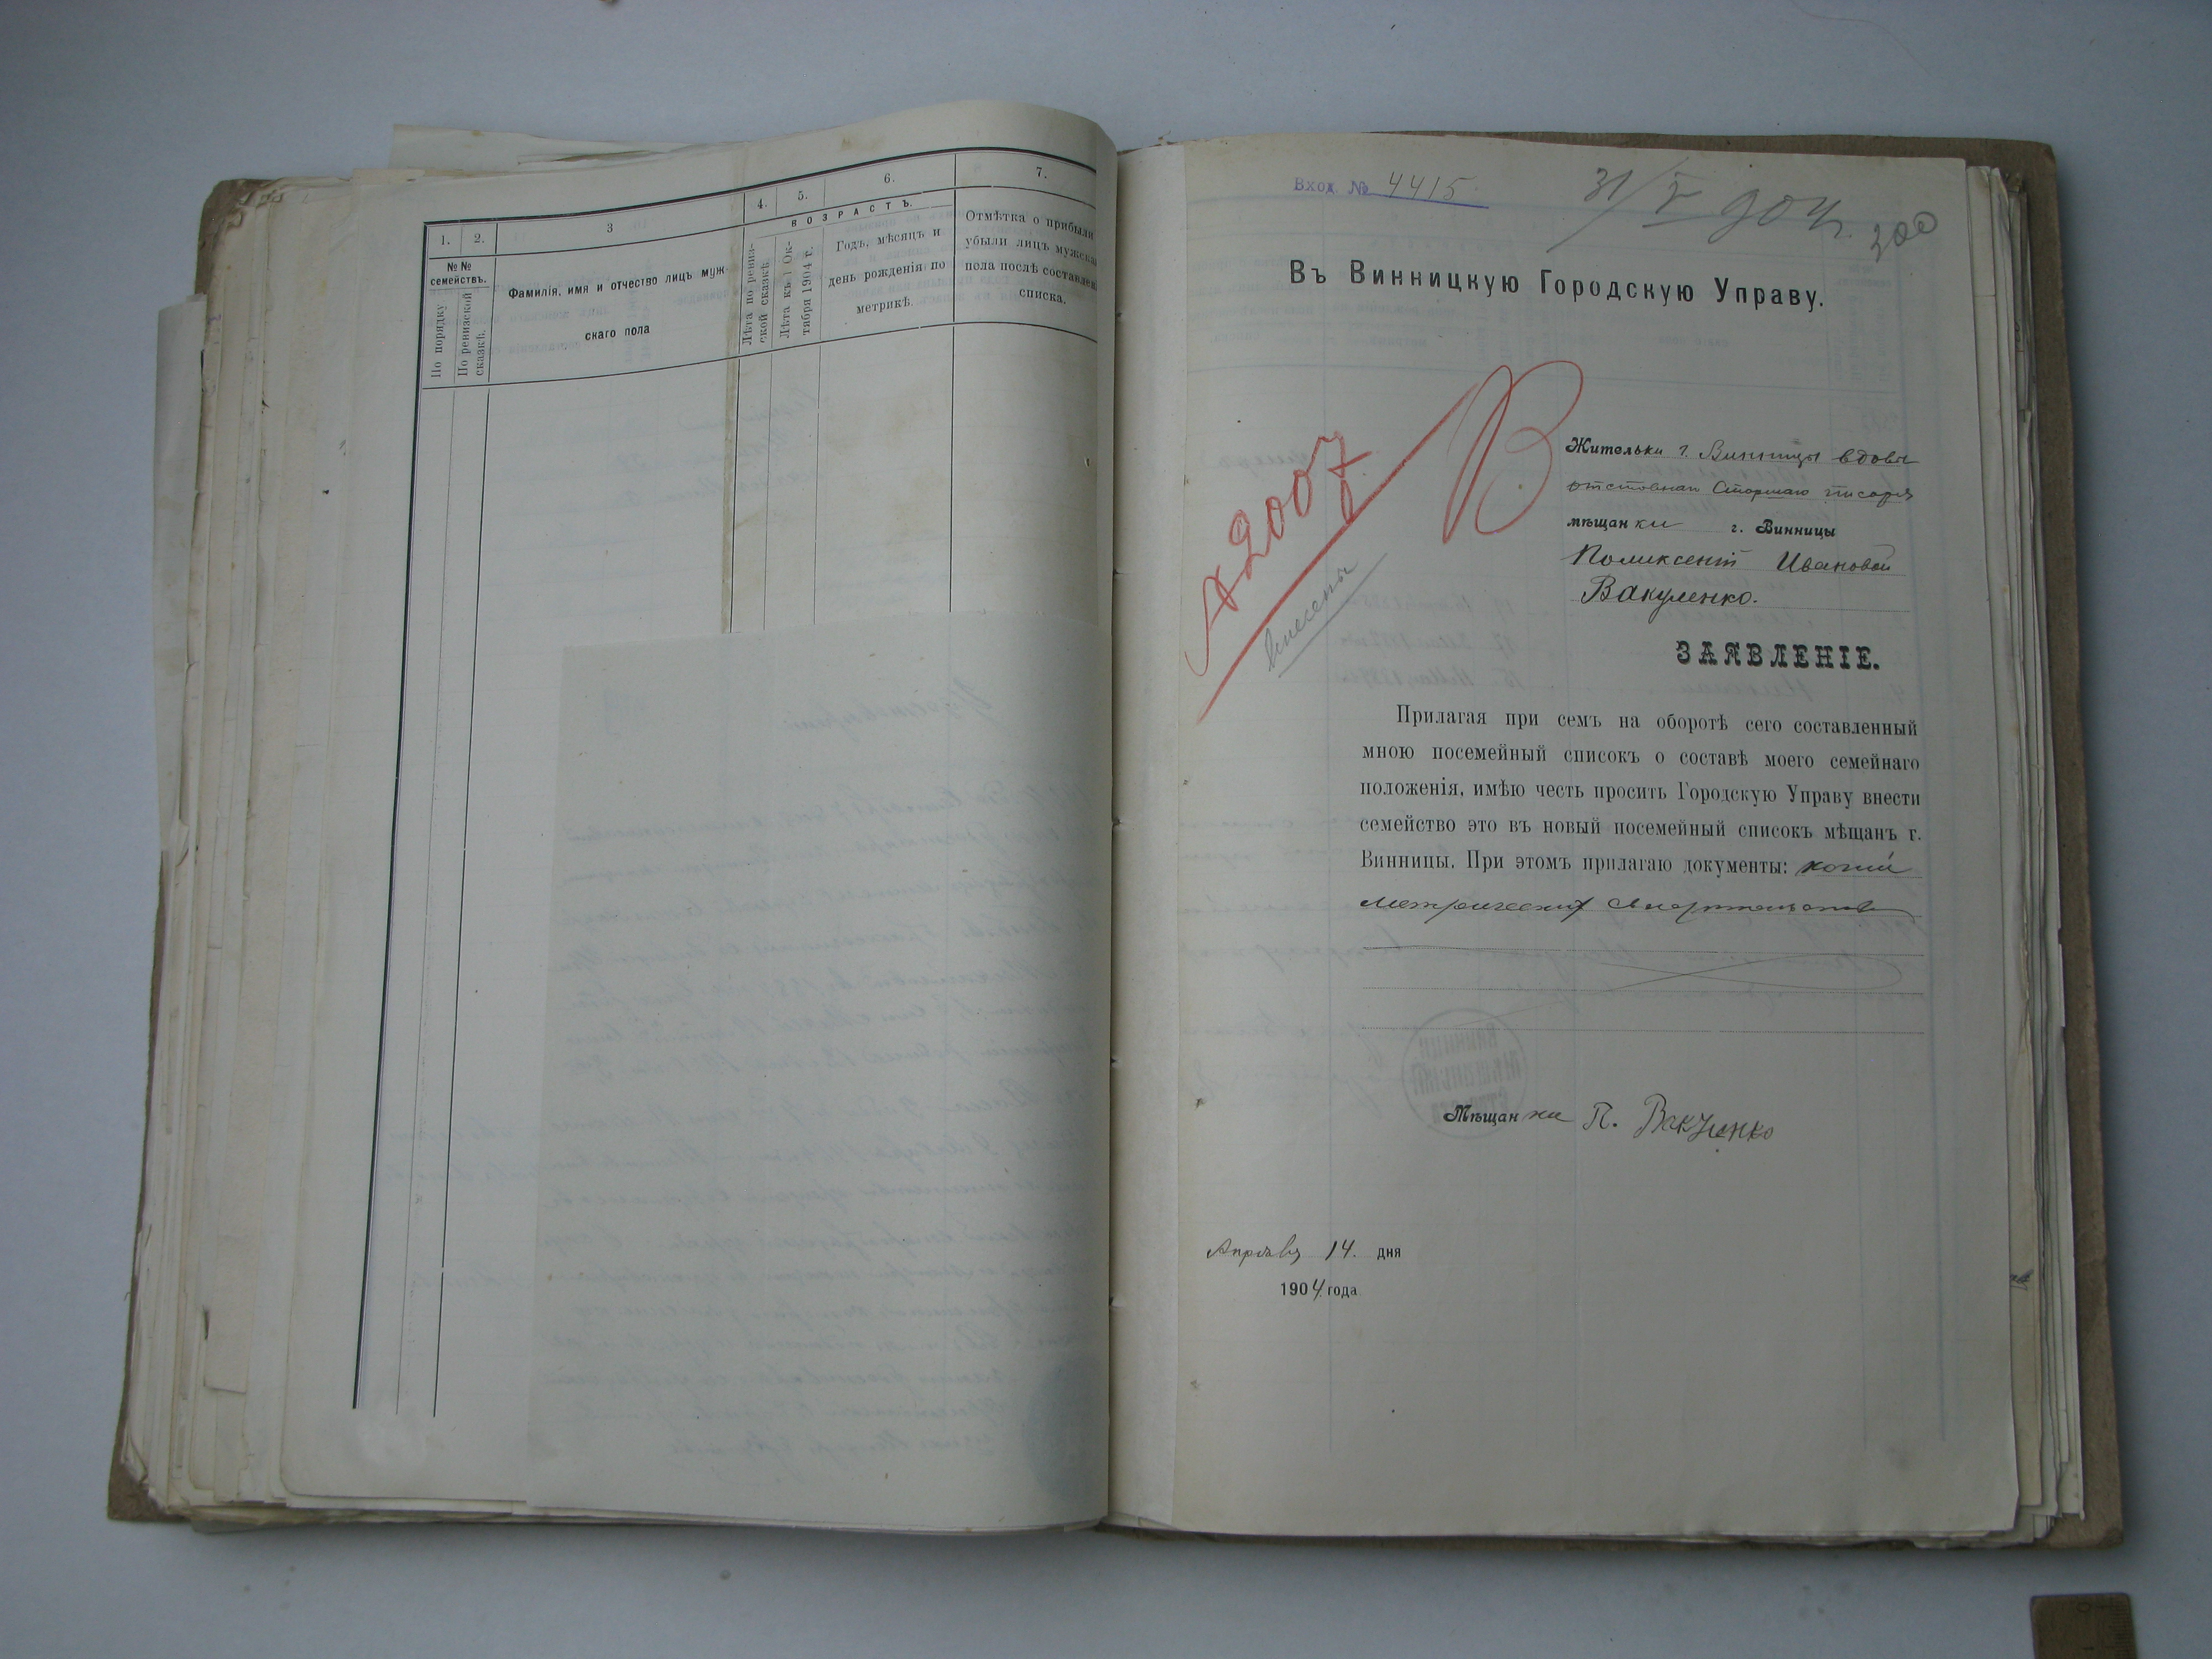 1.
2.
3
4.
5.
6.
7.
№№ семействъ.
По порядку
По ревизской сказкѣ.
Фамилія, имя и отчество лицъ муж-
скаго пола
ВОЗРАСТЪ.
Лѣта по ревиз-
ской сказкѣ.
Лѣта къ 1 Ок-
тября 1904 г.
Годъ, мѣсяцъ и
день рожденія по
метрикѣ.
Отмѣтка о прибыли
убыли лицъ мужска
пола послѣ составлен
списка.
Вход. № 4415.
31/V 904 г.
200
Въ Винницкую Городскую Управу.
№ 2007
В
внесены
Жительки г. Винницы вдовы
отставнаго Старшаго писаря
мѣщанки г. Винницы
Поликсеніи Ивановой
Вакуленко.
ЗАЯВЛЕНІЕ.
Прилагая при семъ на оборотѣ сего составленный
мною посемейный списокъ о составѣ моего семейнаго
положенія, имѣю честь просить Городскую Управу внести
семейство это въ новый посемейный списокъ мѣщанъ г.
Винницы. При этомъ прилагаю документы: копіи
метрическихъ
Мѣщанка П. Вакуленко
Апрѣля 14. дня
1904 года